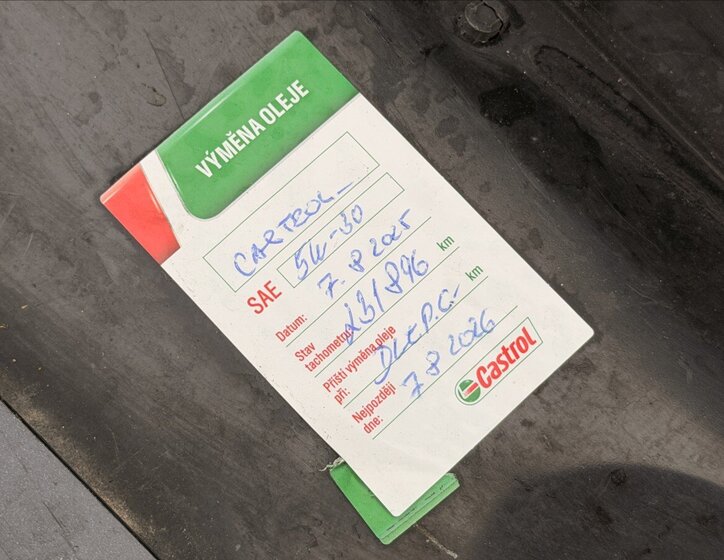 VÝMĚNA OLEJE
CARTROL
SAE 5W-30
Datum: 7. 8 2025
Stav
tachometru 231896 km
Příští výměna oleje
při: DLE P.C. km
Nejpozději
dne: 7 8 2026
Castrol